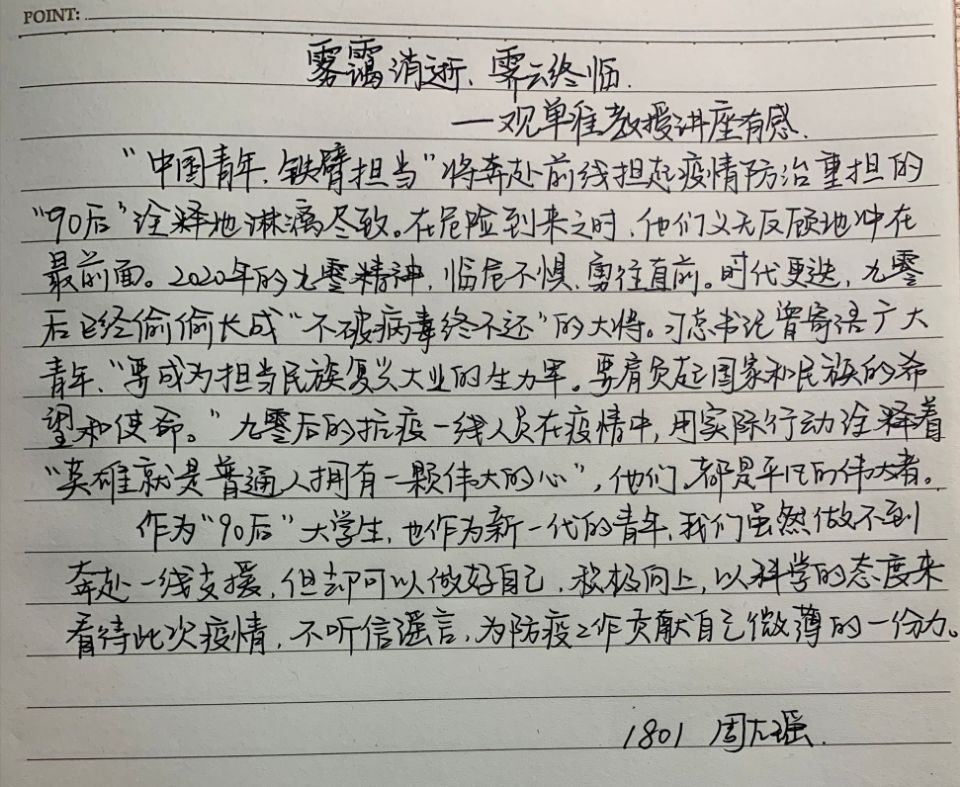 POINT:
雾霭消逝、霁云终临.
—观单淮教授讲座有感.
"中国青年、铁臂担当"将奔赴前线担起疫情防治重担的
"90后"诠释地淋漓尽致。在危险到来之时,他们义无反顾地冲在
最前面。2020年的九零精神,临危不惧、勇往直前。时代更迭,九零
后已经偷偷长成"不破病毒终不还"的大将。习总书记曾寄语广大
青年、"要成为担当民族复兴大业的生力军。要肩负起国家和民族的希
望和使命。"九零后的抗疫一线人员在疫情中,用实际行动诠释着
"英雄就是普通人拥有一颗伟大的心",他们、都是平凡的伟大者。
作为"90后"大学生,也作为新一代的青年,我们虽然做不到
奔赴一线支援,但却可以做好自己,积极向上,以科学的态度来
看待此次疫情,不听信谣言,为防疫工作贡献自己微薄的一份力。
1801 周瑶.